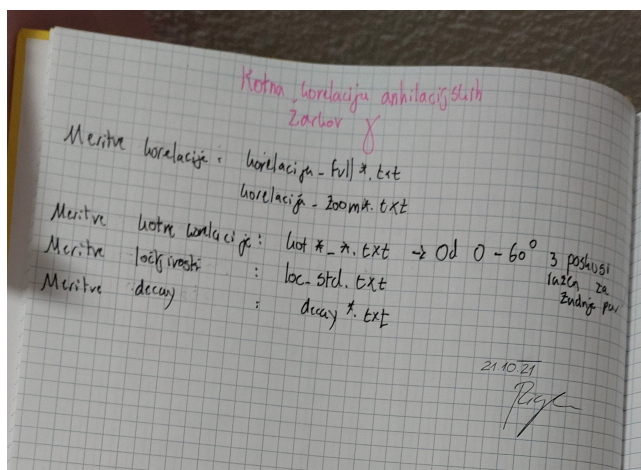 Kotna korelacija anhilacijskih
žarkov γ
Meritve korelacije: korelacija_full*.txt
korelacija_zoom*.txt
Meritve kotne korelacije: kot*_*.txt → Od 0-60° 3 poskusi
razen za
zadnje par
Meritve ločljivosti : loc_std.txt
Meritve decay : decay*.txt
21.10.21